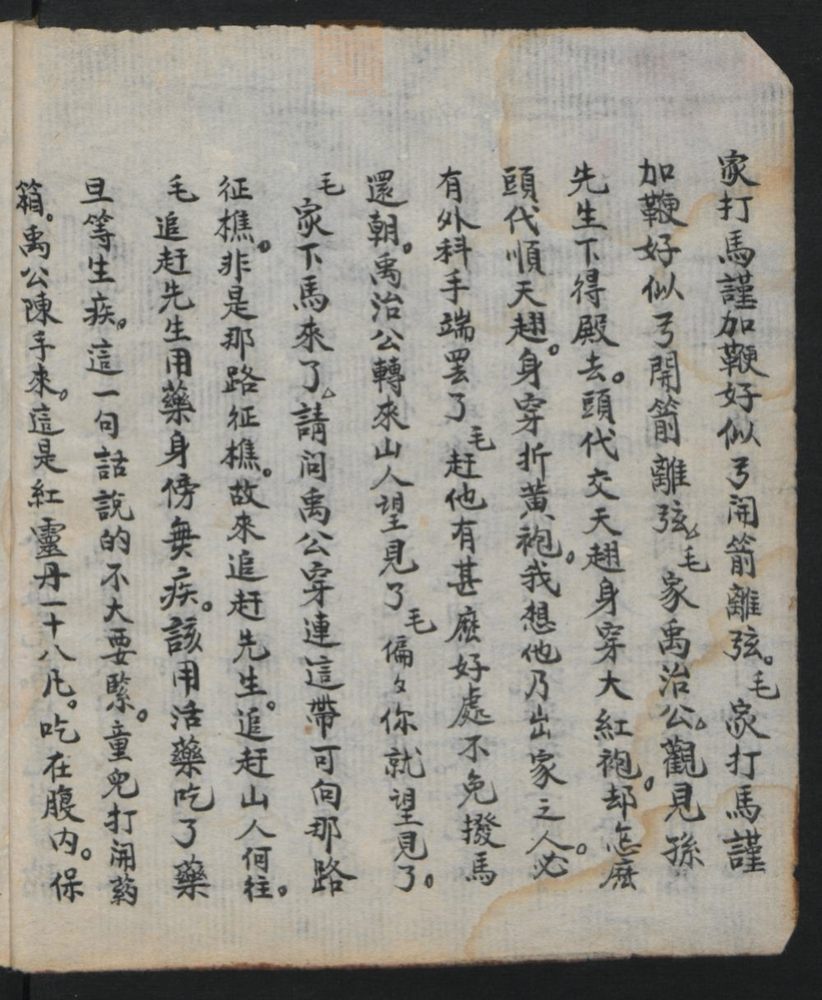 家打馬謹加鞭好似弓開箭離弦。毛家打馬謹
加鞭好似弓開箭離弦。毛家禹治公。觀見孫
先生下得殿去。頭代交天翅身穿大紅袍。却怎麽
頭代順天翅。身穿折黄袍。我想他乃出家之人。必
有外科手端罢了毛赶他有甚麽好處不免撥馬
還朝。禹治公轉來山人望見了毛偏々你就望見了。
毛家下馬來了。請问禹公穿連這帶可向那路
征樵。非是那路征樵。故來追赶先生。追赶山人何往。
毛追赶先生用藥身傍無疾。該用活藥吃了藥
旦等生疾。這一句話說的不大要緊。童兒打開药
箱。禹公陳手來。這是紅靈丹一十八凡。吃在腹内。保